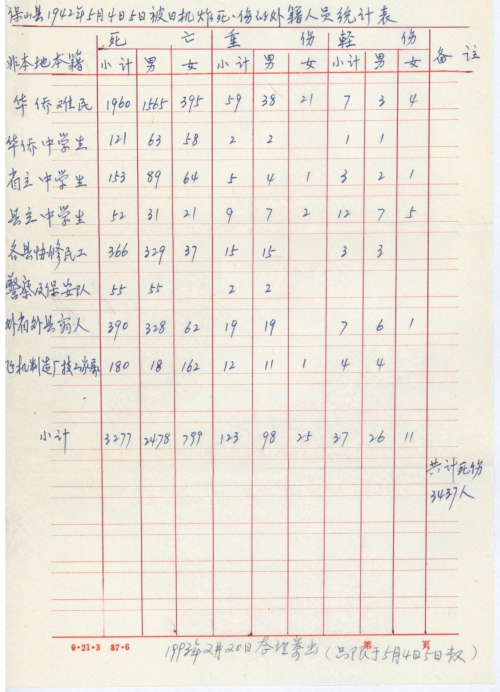 保山县1942年5月4日5日被日机炸死、伤的外籍人员统计表
死亡 重伤 轻伤
非本地本籍 小计 男 女 小计 男 女 小计 男 女 备注
华侨难民 1960 1565 395 59 38 21 7 3 4
华侨中学生 121 63 58 2 2 1 1
省立中学生 153 89 64 5 4 1 3 2 1
县立中学生 52 31 21 9 7 2 12 7 5
各县协修民工 366 329 37 15 15 3 3
警察及保安队 55 55 2 2
外省外县商人 390 328 62 19 19 7 6 1
飞机制造厂技工家属 180 18 162 12 11 1 4 4
小计 3277 2478 799 123 98 25 37 26 11
共计死伤
3437人
9·21·3 87·6 第 页
1993年2月20日 (只限于5月4日5日数)